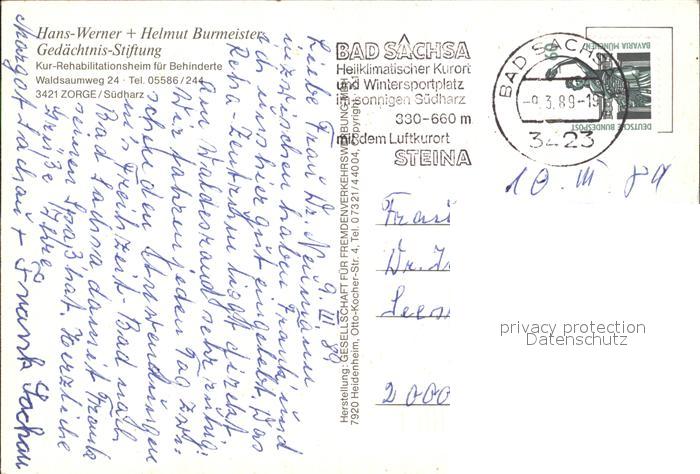 Hans-Werner + Helmut Burmeister
Gedächtnis-Stiftung
Kur-Rehabilitationsheim für Behinderte
Waldsaumweg 24 · Tel. 05586/244
3421 ZORGE/Südharz
9. III. 89
Liebe Frau Dr. Neumann
inzwischen haben Frank und
ich uns hier gut eingelebt. Das
Reha-Zentrum liegt direkt
am Waldesrand sehr ruhig.
Wir fahren jeden Tag zwi-
schen den Anwendungen
ins Freizeit-Bad nach
Bad Sachsa, damit Frank
seinen Spaß hat. Herzliche
Grüße Ihre
Margot Sachau + Frank Sachau
Herstellung: GESELLSCHAFT FÜR FREMDENVERKEHRSWERBUNG
7920 Heidenheim, Otto-Kocher-Str. 4, Tel. 07321/44004, Copyright
BAD SACHSA
Heilklimatischer Kurort
und Wintersportplatz
im sonnigen Südharz
330-660 m
mit dem Luftkurort
STEINA
BAD SACHSA
-9.3.89-19
3423
60
BAVARIA MÜNCHEN
DEUTSCHE BUNDESPOST
10. III. 89
Frau
Dr.
2000
privacy protection
Datenschutz